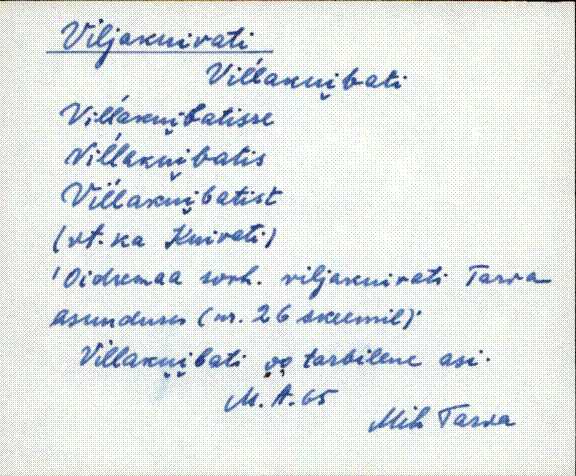 Viljakuivati
Vil´l´akui̬bati
Vil´l´akui̬batisse
Vil´l´akui̬batis
Vil´l´akui̬batist
(vt. ka Kuivati)
'Oidremaa sovh. viljakuivati Tarva
asunduses (nr. 26 skeemil)'
Vil´l´aku̬i̬bati o̬o̬ tarbilene asi.
M. A. 65
Mih Tarva